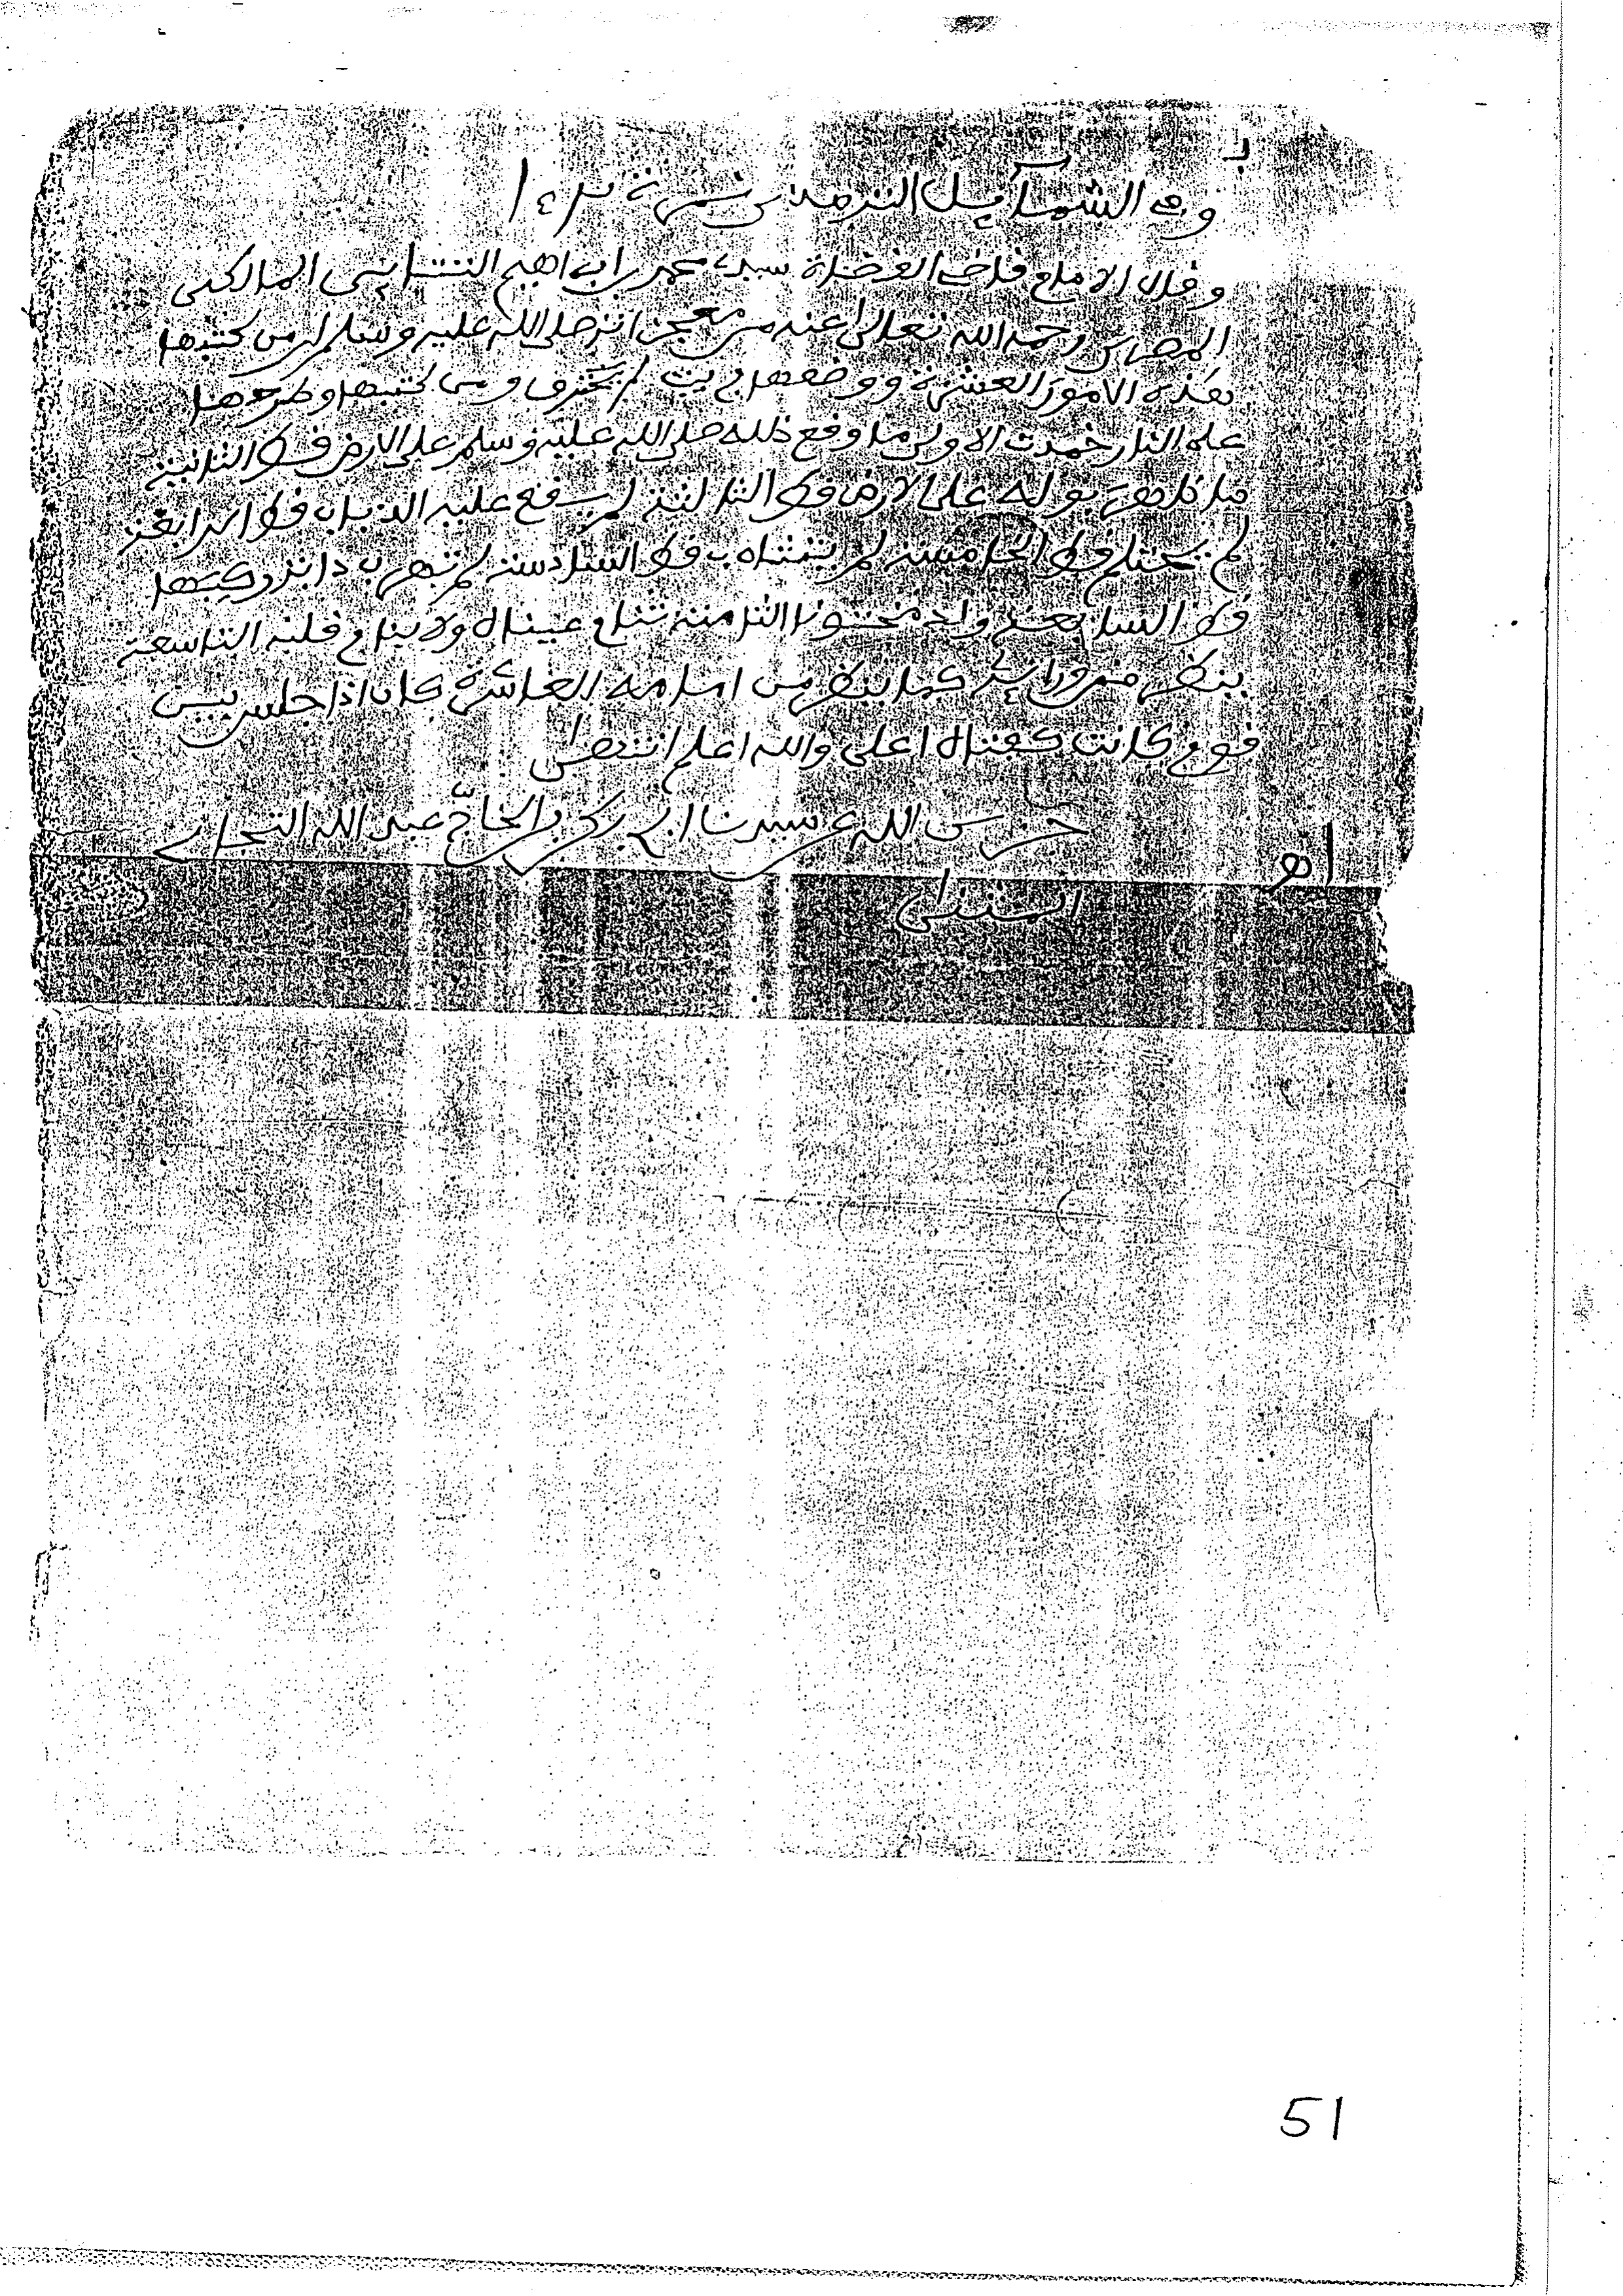 وفى الشمآيل الترمذى نمرة ١٤٣
وقال الامام قاضى القضاة سيدى محمد ابراهيم التتاءى المالكى
المصرى رحمه الله تعالى عنه من معجزاته صلى الله عليه وسلم ان من كتبها
هذه الامور العشرة ووضعها فى بيت لم يحترق ومن كتبها وطرحوها
على النار خمدت الاولى ما وقع ظله صلى الله عليه وسلم على الارض قط الثانية
ما ظهر بوله على الارض قط الثالثة لم يقع عليه الذباب قط الرابعة
لم يحتلم قط الخامسة لم يتثاوب قط السادسة لم تهرب دابة ركبها
قط السابعة ولد مختونا الثامنة تنام عيناه ولا ينام قلبه التاسعة
ينظر من ورائه كما ينظر من امامه العاشرة كان اذا جلس بين
قوم كانت كتفاه اعلى والله اعلم انتهى
اه
من الله سيدنا ابى بكر الحاج عبد الله
51